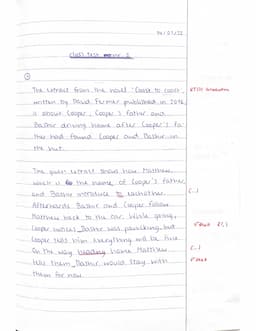 14/07/22
class test no 2
①
The extract from the novel "Coast to coast",
written by David Fermer published in 2016,
is about Cooper, Cooper's father and
Bashir driving home after Cooper's fa-
ther had found Cooper and Bashir in
the hut.
The given extract shows how Matthew,
which is the name of Cooper's father,
and Bashir introduce to eachother.
Afterwards Bashir and Cooper follow
Matthew back to the car. While going,
Cooper notices, Bashir was panicking, but
Cooper tells him everything will be fine.
On the way heading home Matthew
tells them, Bashir would stay with
them for now.